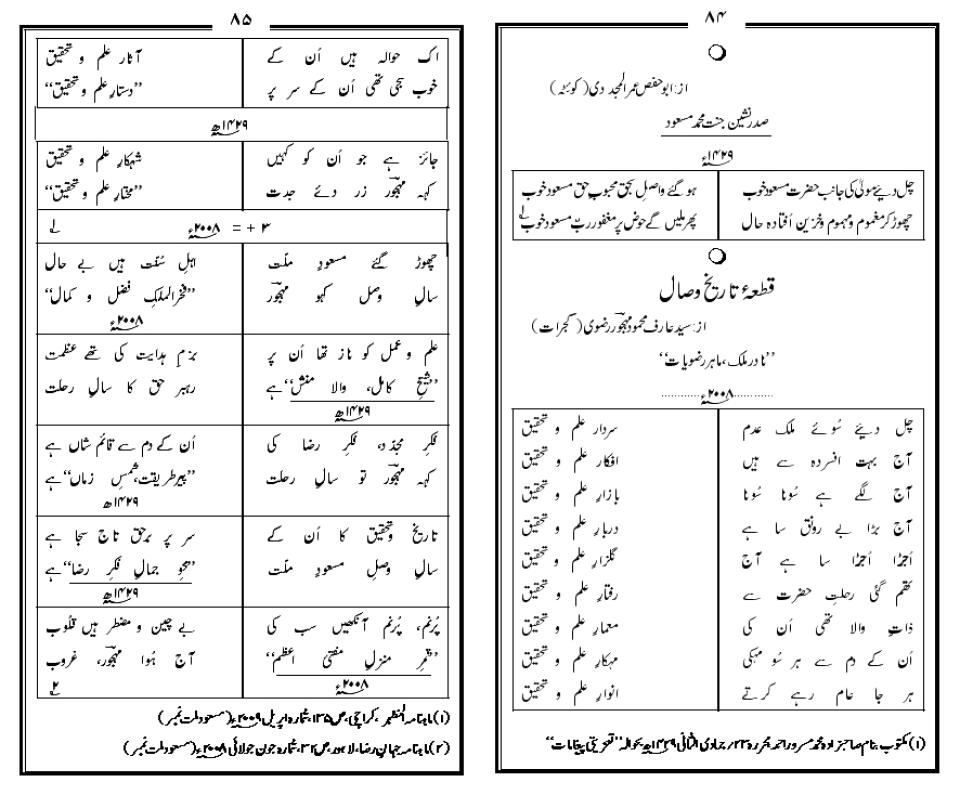 ۸۴
از: ابوحفص عمر المجددی (کوئٹہ)
صدر نشین جنت محمد مسعود
۱۴۲۹ء
چل دیئے مولیٰ کی جانب حضرت مسعود خوب ہو گئے واصل بحق محبوبِ حق مسعود خوب
چھوڑ کر مغموم و مہموم و حزین اُفتادہ حال پھر ملیں گے حوض پر مغفور ربّ مسعود خوب ۱
قطعۂ تاریخ وصال
از: سید عارف محمود مہجورؔ رضوی (گجرات)
’’نادر ملک، ماہر رضویات‘‘
۲۰۰۸ء
چل دیئے سُوئے ملک عدم سردار علم و تحقیق
آج بہت افسردہ سے ہیں افکار علم و تحقیق
آج لگے ہے سُونا سُونا بازارِ علم و تحقیق
آج بڑا بے رونق سا ہے دربارِ علم و تحقیق
اُجڑا اُجڑا سا ہے آج گلزارِ علم و تحقیق
تھم گئی رحلتِ حضرت سے رفتارِ علم و تحقیق
ذاتِ والا تھی اُن کی معمارِ علم و تحقیق
اُن کے دم سے ہر سُو مہکی مہکارِ علم و تحقیق
ہر جا عام رہے کرتے انوارِ علم و تحقیق
(۱) مکتوب بنام صاحبزادہ محمد مسرور احمد محررہ ۲۳؍ جمادی الثانی ۱۴۲۹ھ بحوالہ ’’تعزیتی پیغامات‘‘
۸۵
اک حوالہ ہیں اُن کے آثار علم و تحقیق
خوب سجی تھی اُن کے سر پر ’’دستارِ علم و تحقیق‘‘
۱۴۲۹ھ
جائز ہے جو اُن کو کہیں شہکار علم و تحقیق
کہہ مہجورؔ زر دئے جدت ’’مختارِ علم و تحقیق‘‘
۳ + = ۲۰۰۸ء ۱
چھوڑ گئے مسعودِ ملّت اہلِ سُنّت ہیں بے حال
سالِ وصل کہو مہجورؔ ’’فخر الملکِ فضل و کمال‘‘
۲۰۰۸ء
علم و عمل کو ناز تھا اُن پر بزمِ ہدایت کی تھے عظمت
’’شیخِ کامل، والا منش‘‘ ہے رہبر حق کا سالِ رحلت
۱۴۲۹ھ
فکرِ مجدّد، فکرِ رضا کی اُن کے دم سے قائم شاں ہے
کہہ مہجورؔ تو سالِ رحلت ’’پیر طریقت، شمسِ زماں‘‘ ہے
۱۴۲۹ھ
تاریخ و تحقیق کا اُن کے سر پر برحق تاج سجا ہے
سالِ وصلِ مسعودِ ملّت ’’محوِ جمالِ فکرِ رضا‘‘ ہے
۱۴۲۹ھ
پُرنم، پُرنم آنکھیں سب کی بے چین و مضطر ہیں قلُوب
’’قمرِ منزلِ مفتیٔ اعظم‘‘ آج ہُوا مہجورؔ، غروب
۲۰۰۸ء ۲
(۱) ماہنامہ المظہر، کراچی، ص ۱۳۵، شمارہ اپریل ۲۰۰۹ء (مسعود ملت نمبر)
(۲) ماہنامہ جہانِ رضا، لاہور، ص ۳۲، شمارہ جون جولائی ۲۰۰۸ء (مسعود ملت نمبر)